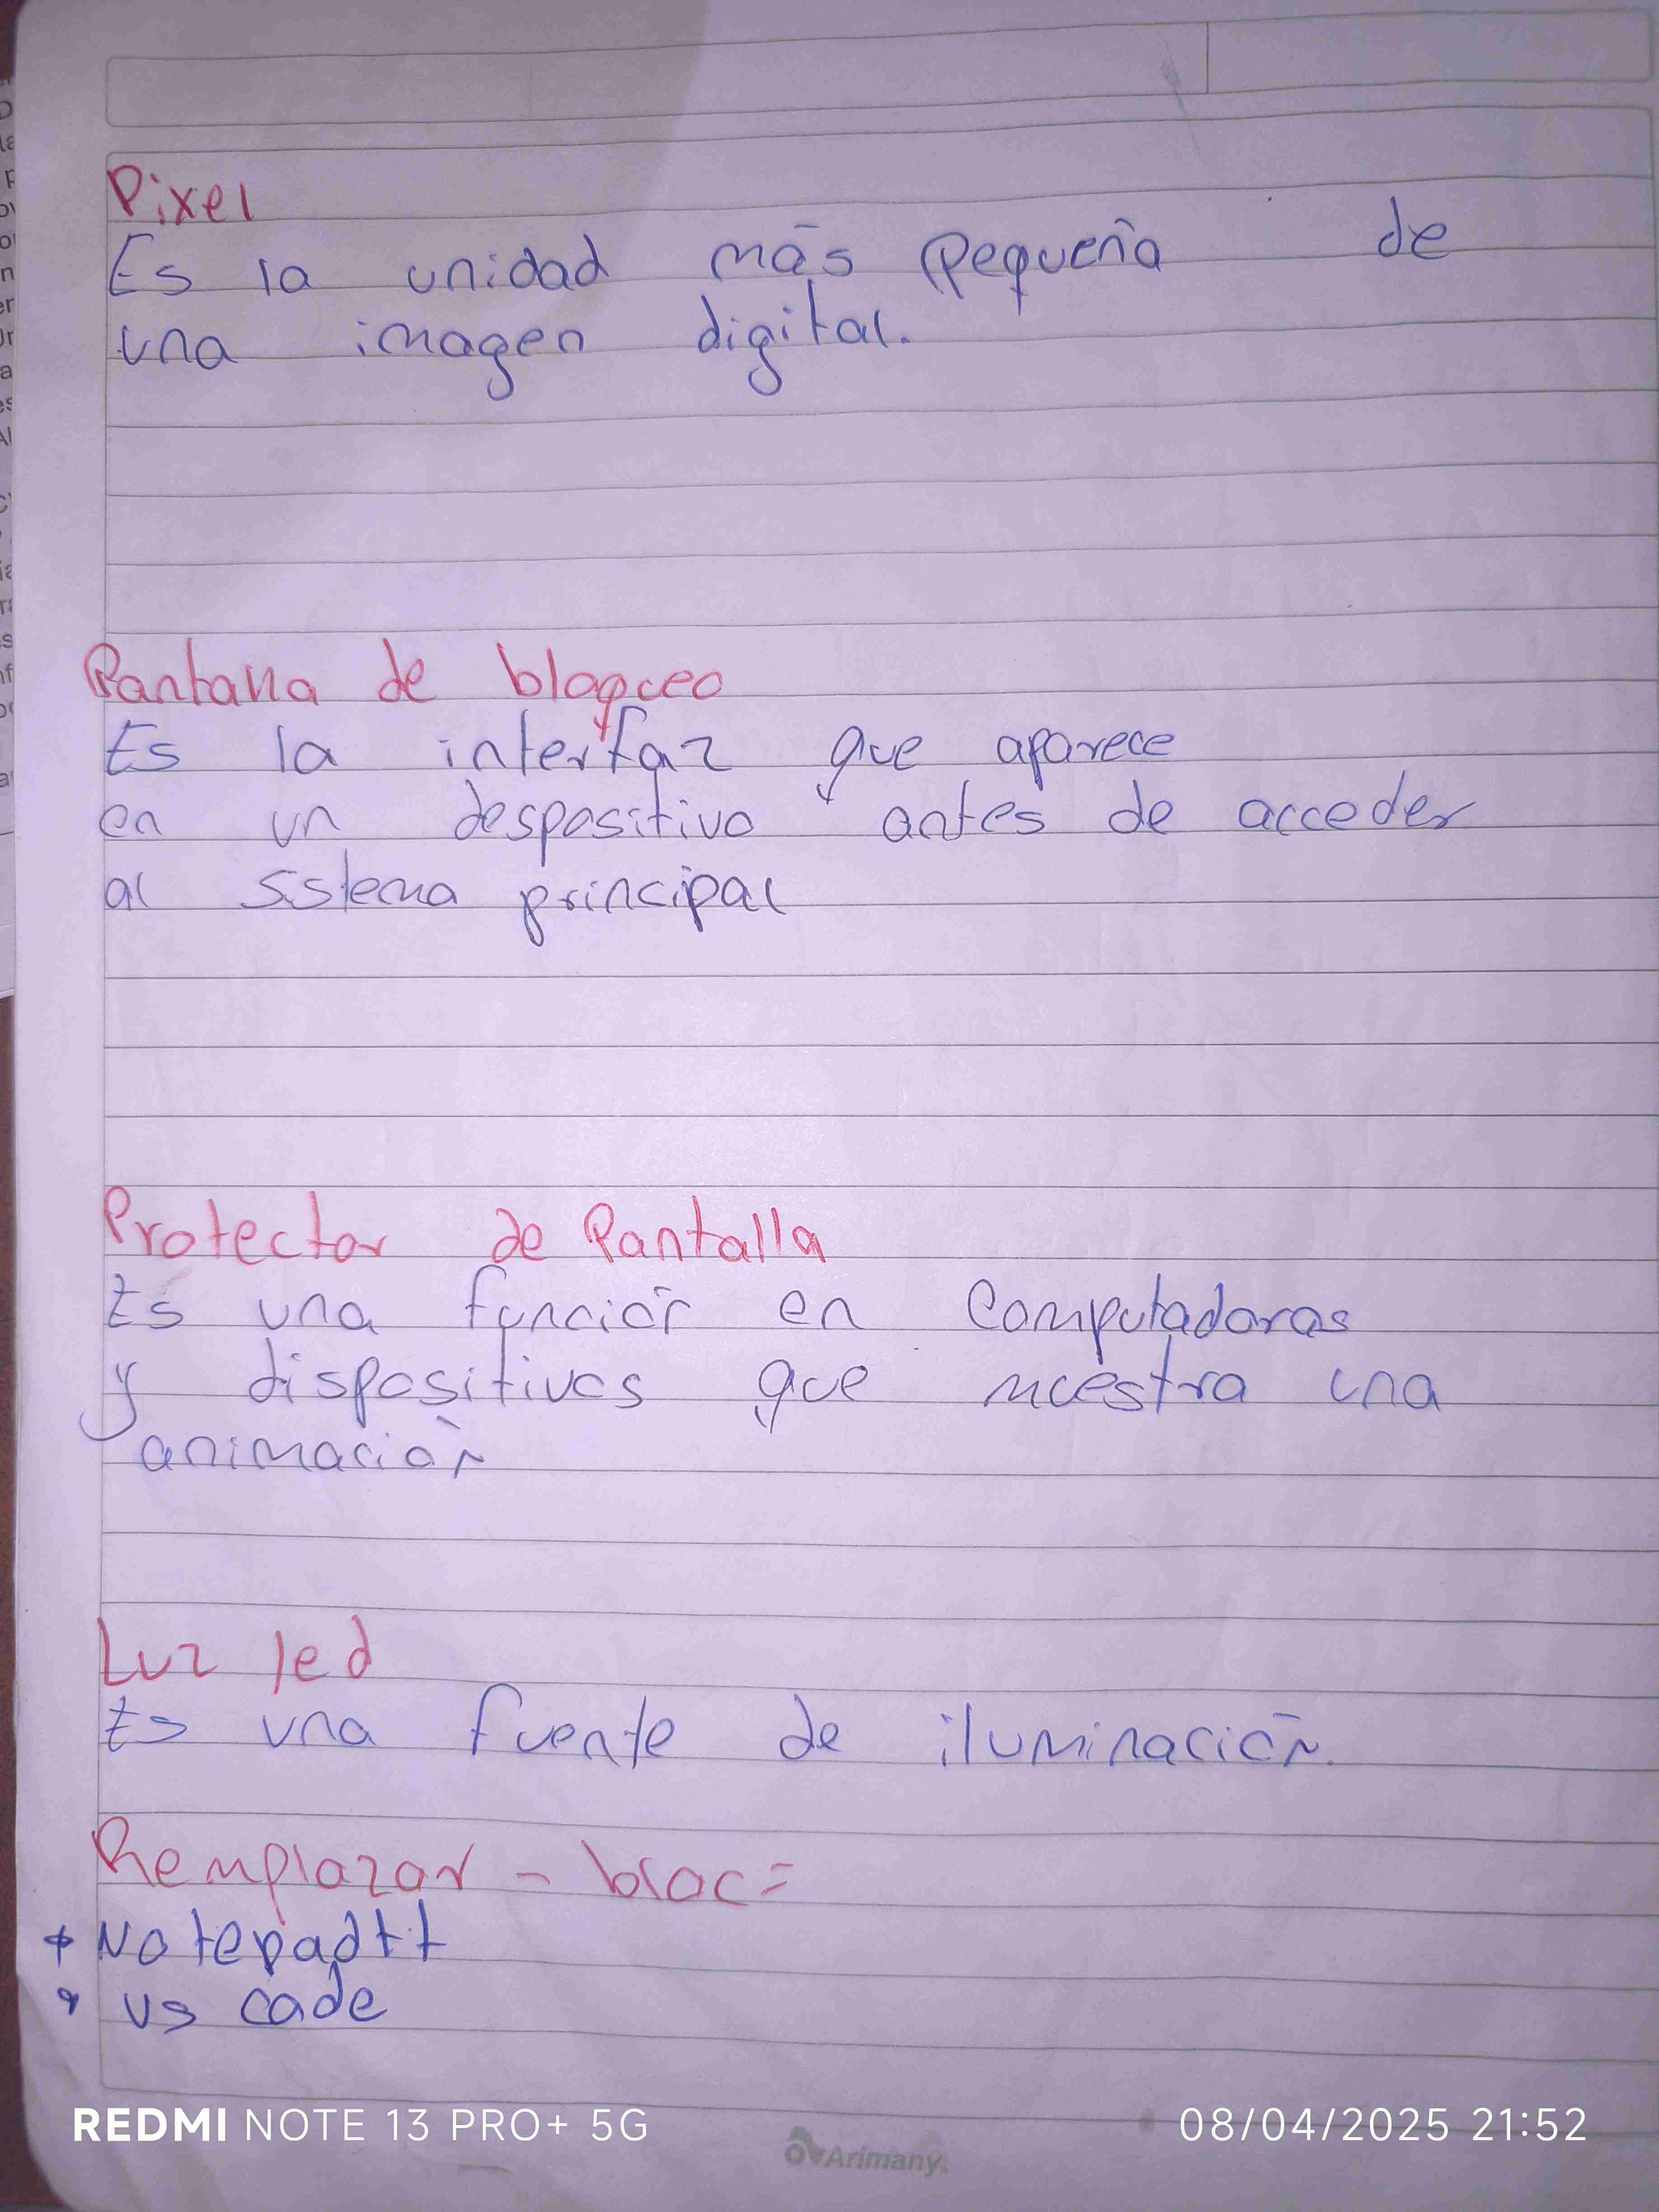 Pixel
Es la unidad más pequeña de
una imagen digital.
Pantalla de bloqueo
Es la interfaz que aparece
en un despositivo antes de acceder
al sistema principal
Protector de Pantalla
Es una función en Computadoras
y dispositivos que muestra una
animación
Luz led
Es una fuente de iluminación.
Remplazar - bloc=
+ Notepad++
* vs code
REDMI NOTE 13 PRO+ 5G
08/04/2025 21:52
Arimany.